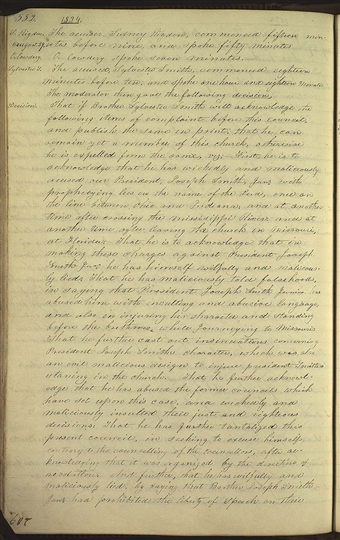 1834.
S. Rigdon The accuser, Sidney Rigdon, commenced fifteen min-
utes before nine, and spoke fifty minutes.
O. Cowdery spoke seven minutes.
Sylvester S. The accused, Sylvester Smith, commenced eighteen
minutes before ten, and spoke one hour and eighteen minutes.
The moderator then gave the following decision,
Decision. That if Brother Sylvester Smith will acknowledge the
following items of complaint before this council,
and publish the same in print, that he can
remain yet a member of this church, otherwise
he is expelled from the same, viz: First, he is to
acknowledge that he has wickedly and maliciously
accused our President, Joseph Smith, Jun. with
prophesying lies in the name of the Lord, once on
the line between Ohio and Indiana, and at another
time after crossing the Mississippi River, and at
another time after leaving the church in Missouri,
at Florida. That he is to acknowledge that in
making these charges against President Joseph
Smith Jun. he has himself wilfully and malicious-
ly lied. That he has maliciously told falsehoods,
in saying that President Joseph Smith Junior has
abused him with insulting and abusive language,
and also in injuring his character and standing
before the brethren, while journeying to Missouri.
That he further cast out insinuations concerning
President Joseph Smith's character, which was also
an evil malicious design to injure president Smith's
standing in the church. That he further acknowl-
edge that he has abused the former councils which
have set upon this case, and wickedly and
maliciously insulted their just and righteous
decisions. That he has further tantalized this
present council, in seeking to excuse himself
owing to the of the counsellors, after ac-
knowledging that it was organized by the direction of
revelation. And further, that he has wilfully and
maliciously lied, by saying that Brother Joseph Smith
Jun. has prohibited the liberty of speech in this